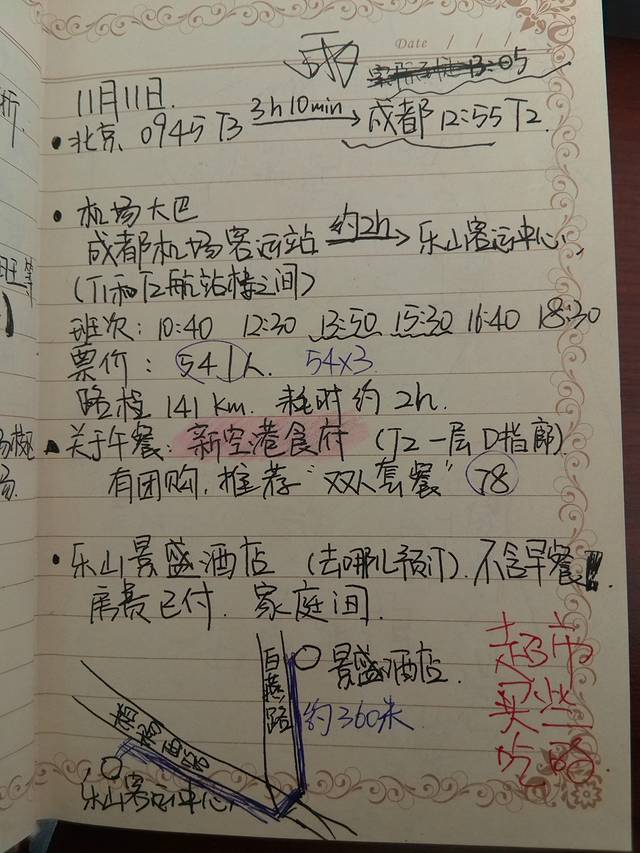 Date / / /
11月11日.
• 北京 0945 T3 3h10min 成都 12:55 T2.
• 机场大巴
成都机场客运站 约2h 乐山客运中心
(T1和T2航站楼之间)
班次: 10:40 12:30 13:50 15:30 16:40 18:30
票价: 54/人. 54×3
路程 141 km. 耗时约2h.
关于午餐: 新空港食府 (T2一层D指廊)
有团购, 推荐“双人套餐” 78
• 乐山景盛酒店 (去哪儿预订). 不含早餐!!.
房费已付. 家庭间.
白燕路
景盛酒店.
约360米
乐山客运中心
超市
买些
吃的